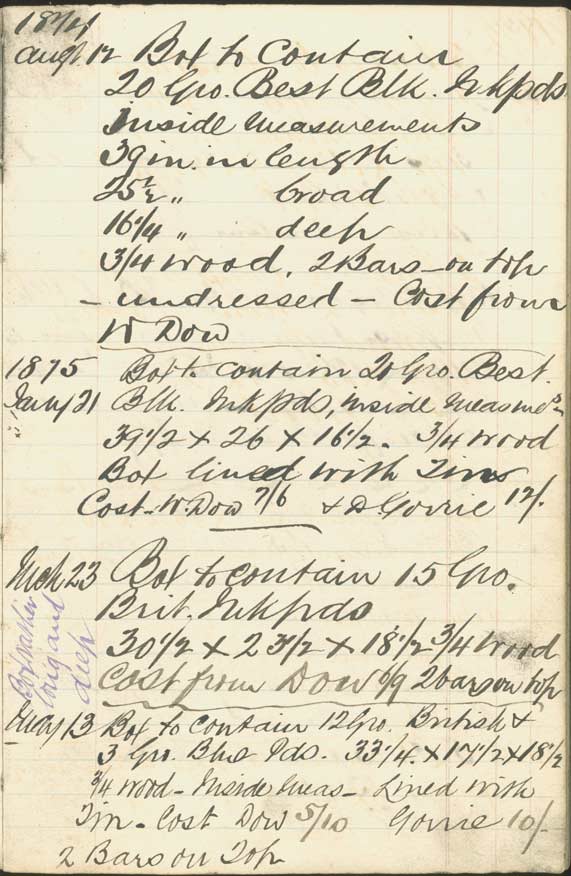 1874
Augt 12 Box to Contain
20 Gro. Best Blk. Inkpds
Inside Measurements
39 in. in length
25½ „ broad
16¼ „ deep
3/4 wood, 2 Bars on top
– undressed – Cost from
W Dow
1875 Box to contain 20 Gro. Best
Jany 21 Blk. Inkpds, inside Measmts
39 1/2 × 26 × 16 1/2. 3/4 wood
Box lined with Tin
Cost W. Dow 7/6 & D. Gorrie 12/.
Mch 23 Box to contain 15 Gro.
Brit. Inkpds
30 1/2 × 23 1/2 × 18 1/2 3/4 wood
Cost from Dow 6/9 2 bars on top
Box rather
long and
deep
May 13 Box to contain 12 Gro. British &
3 Gro. Blue Pds. 33 1/4. × 17 1/2 × 18 1/2
3/4 wood – Inside Meas – Lined with
Tin – Cost Dow 5/10 Gorrie 10/-
2 Bars on Top